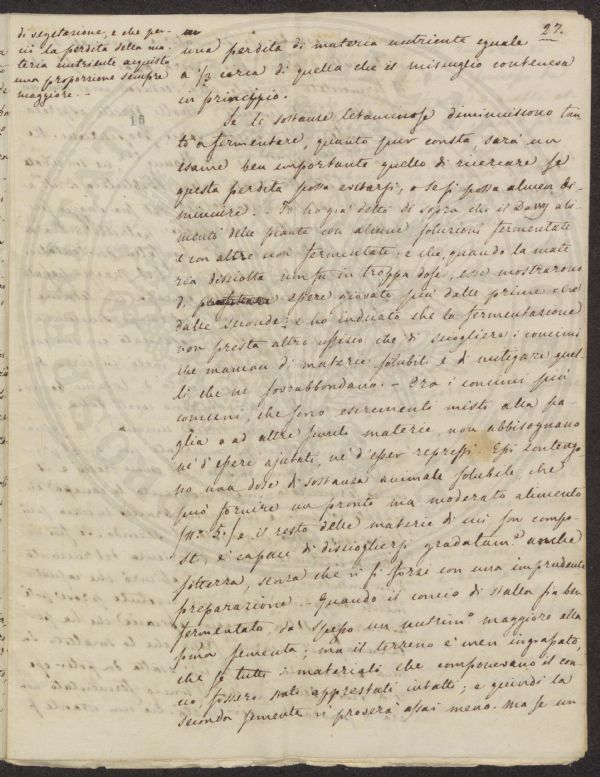 27.
di vegetazione, e che per-
ciò la perdita della ma-
teria nutriente acquista
una proporzione sempre
maggiore. —
una perdita di materia nutriente eguale
a 1/3 circa di quella che il miscuglio conteneva
in principio.
15
Se le sostanze letaminose diminuiscono tan
to a fermentare, quanto pur consta, sarà un
esame ben importante quello di ricercare se
questa perdita possa evitarsi, o se si possa almen di-
minuire. — Io ho già detto di sopra che il Davy ali-
mentò delle piante con alcune soluzioni fermentate
e con altre non fermentate; e che, quando la mate
ria disciolta non fu in troppa dose, esse mostrarono
d' essere giovate più dalle prime che
dalle seconde; e ho indicato che la fermentazione
non presta altro uffizio che di sciogliere i concimi
che mancan di materie solubili e di mitigare quel-
li che ne sovrabbondano. — Ora i concimi più
comuni, che sono escrementi misti alla pa-
glia o ad altre simili materie, non abbisognano
nè d'essere ajutati, nè d'esser repressi. Essi contengo
no una dose di sostanza animale solubile che
può fornire un pronto ma moderato alimento
(N.° 5.) e il resto delle materie di cui son compo-
sti, è capace di disciogliersi gradatam.e anche
sotterra, senza che vi si sforzi con una imprudente
preparazione. Quando il concio di stalla sia ben
fermentato, dà spesso un nutrim.o maggiore alla
prima sementa; ma il terreno è men ingrassato,
che se tutti i materiali che componevano il con-
cio fossero stati apprestati intatti; e quindi la
seconda sementa vi proserà assai meno. Ma se un